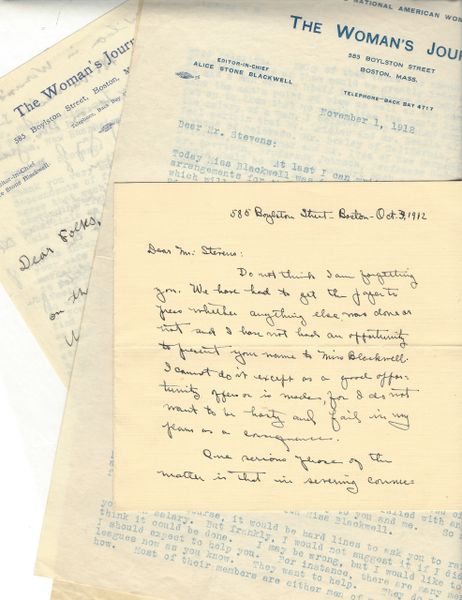 NATIONAL AMERICAN WOM
THE WOMAN'S JOUR
585 BOYLSTON STREET
BOSTON, MASS.
EDITOR-IN-CHIEF
ALICE STONE BLACKWELL
TELEPHONE-BACK BAY 4717
November 1, 1912
Dear Mr. Stevens:
At last I can
Today Miss Blackwell was
arrangements for
which will
The Woman's Journ
585 Boylston Street, Boston, M
Telephone, Back Bay
Editor-in-Chief
Stone Blackwell
Dear Folks,
on th
585 Boylston Street - Boston - Oct. 3, 1912
Dear Mr. Stevens:
Do not think I am forgetting
you. We have had to get the paper to
press whether anything else was done or
not and I have not had an opportunity
to present your name to Miss Blackwell.
I cannot do it except as a good oppor-
tunity offers or is made, for I do not
want to be hasty and fail in my
plans as a consequence.
One serious phase of the
matter is that in severing connec-
to you and me. So
Miss Blackwell.
course, it would be hard lines to ask you to
salary. But frankly, I would not suggest it if I di
think it could be done. I may be wrong, but I would like to
I should expect to help you. For instance, there are many me
leagues now as you know. They want to help. They do
how. Most of their members are either men of